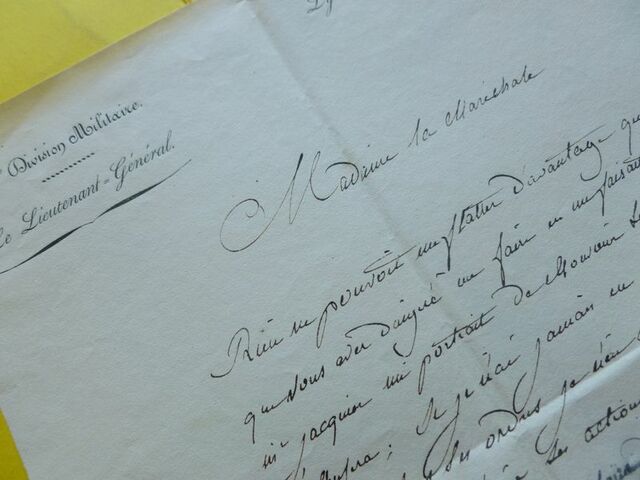 Division Militaire.
Le Lieutenant-Général.
Ly
Madame la Maréchale
Rien ne pouvoit me flatter d'avantage qu
que vous avez daigné me faire en me faisant
un portrait de Monsieur le
je n'ai jamais eu
ses ordres je n'en
ses actions